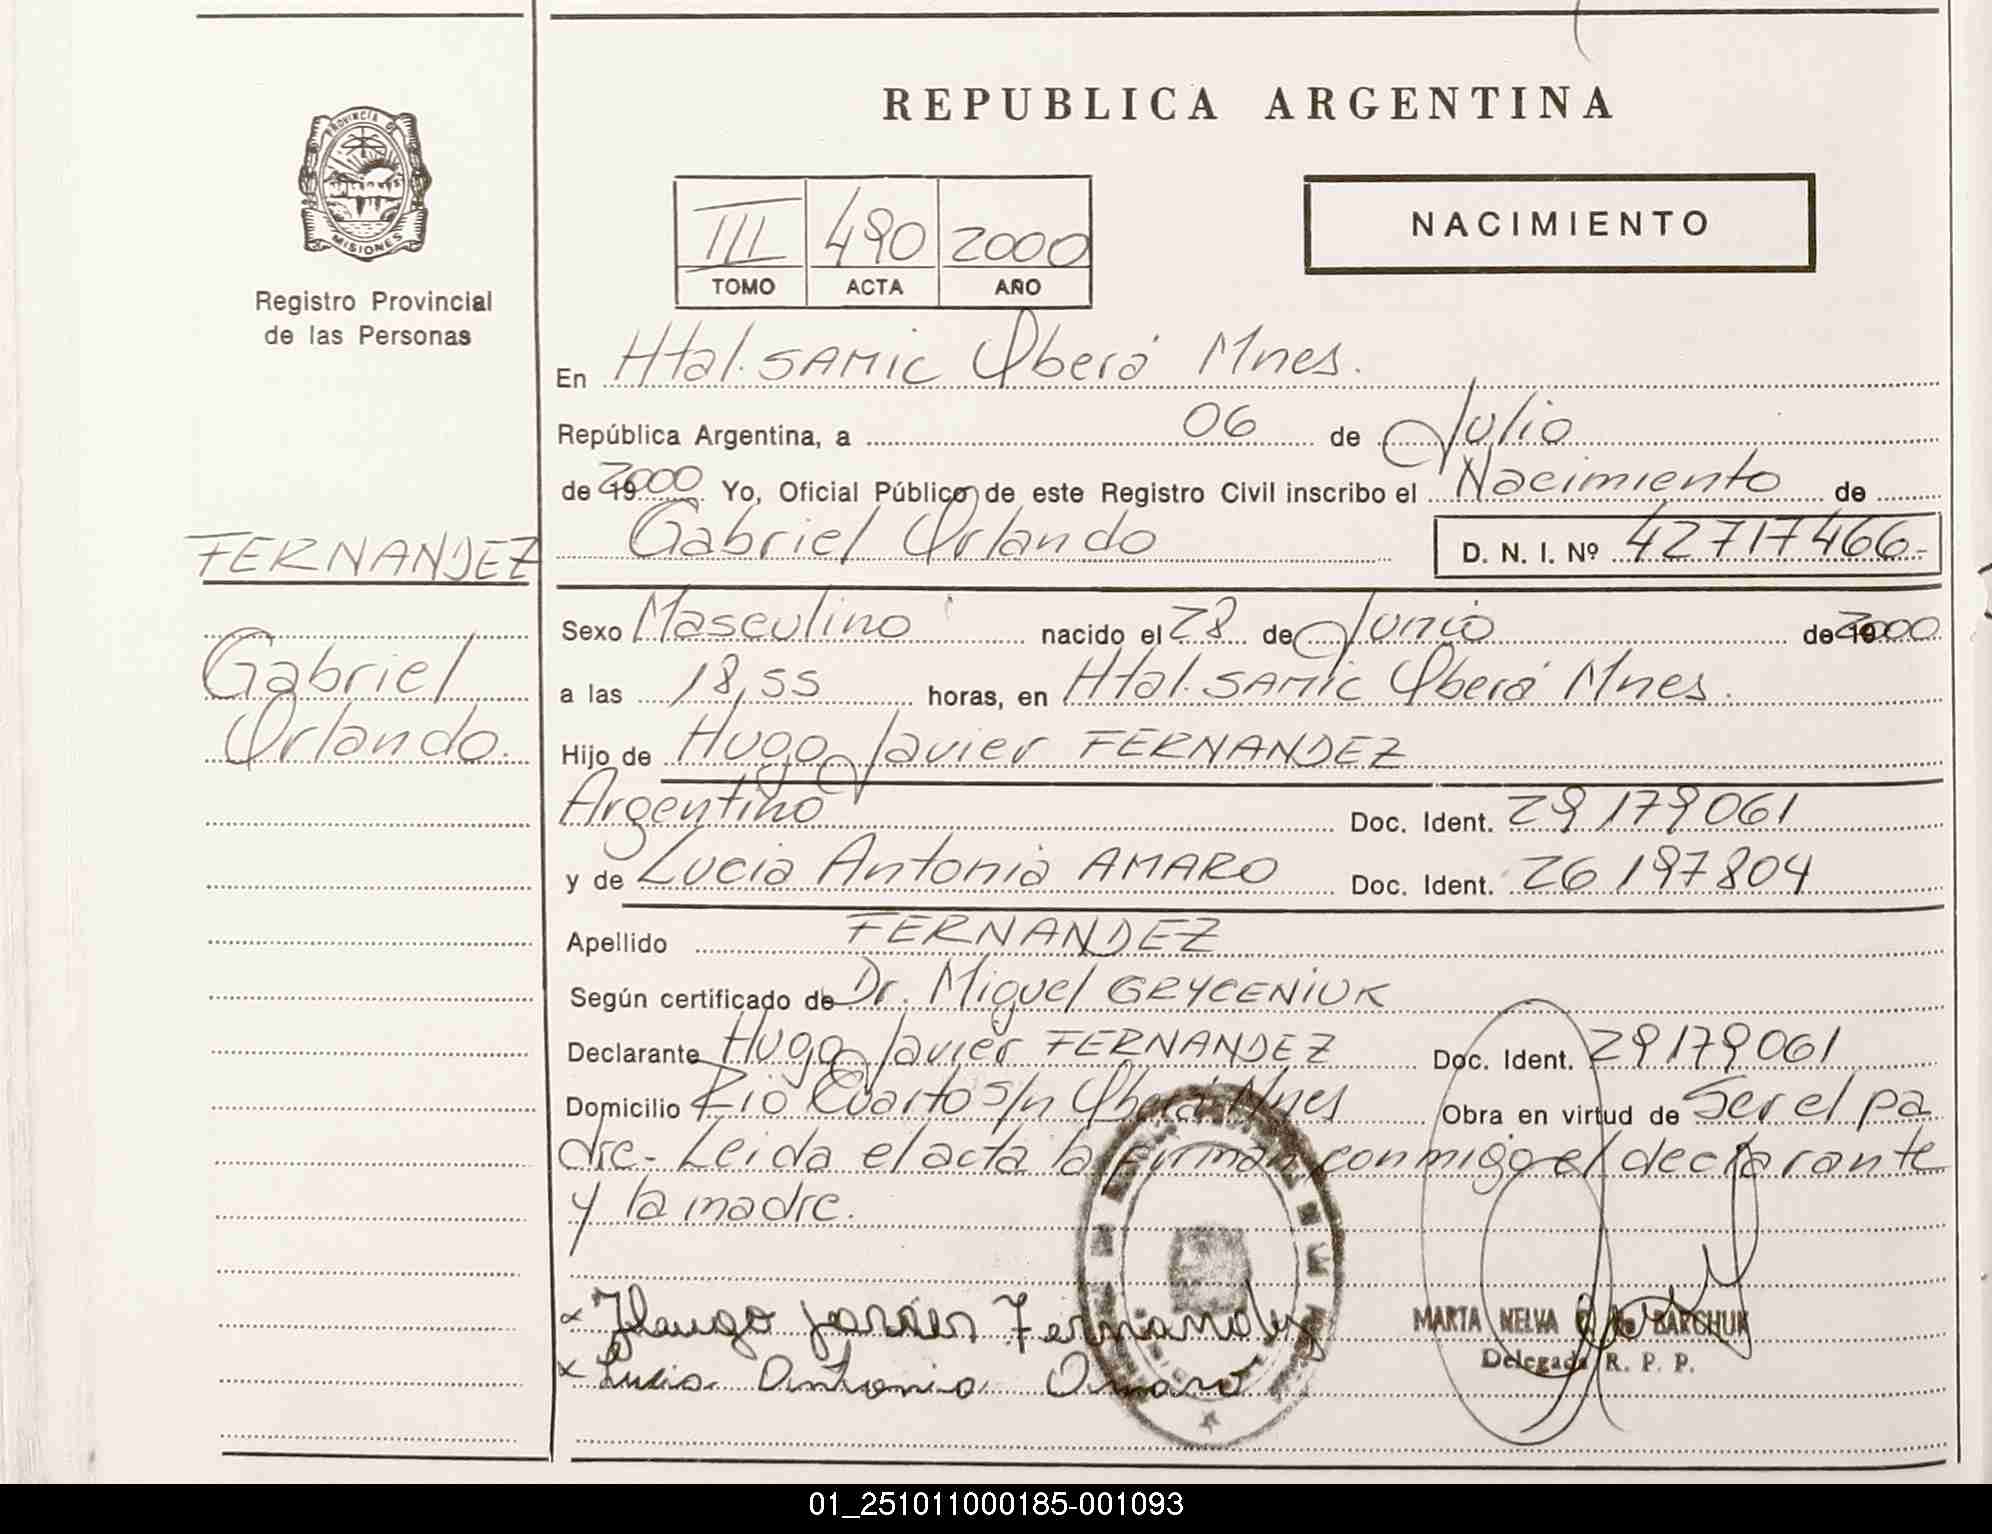 REPUBLICA ARGENTINA
PROVINCIA DE
MISIONES
Registro Provincial
de las Personas
III 490 2000
TOMO ACTA AÑO
NACIMIENTO
En Htal. SAMIC Oberá Mnes.
República Argentina, a 06 de Julio
de 2000 Yo, Oficial Público de este Registro Civil inscribo el Nacimiento de
Gabriel Orlando D. N. I. Nº 42717466-
FERNANDEZ
Gabriel
Orlando.
Sexo Masculino nacido el 28 de Junio de 2000
a las 18,55 horas, en Htal. SAMIC Oberá Mnes.
Hijo de Hugo Javier FERNANDEZ
Argentino Doc. Ident. 29179061
y de Lucia Antonia AMARO Doc. Ident. 26197804
Apellido FERNANDEZ
Según certificado de Dr. Miguel GRYCENIUK
Declarante Hugo Javier FERNANDEZ Doc. Ident. 29179061
Domicilio Rio Cuarto s/n Oberá Mnes Obra en virtud de Ser el pa
dre- Leida el acta la firman conmigo el declarante
y la madre.
x Haugo Javier Fernandez
x Lucia Antonia Amaro
MARTA NELVA BARCHUK
Delegada R. P. P.
01_251011000185-001093